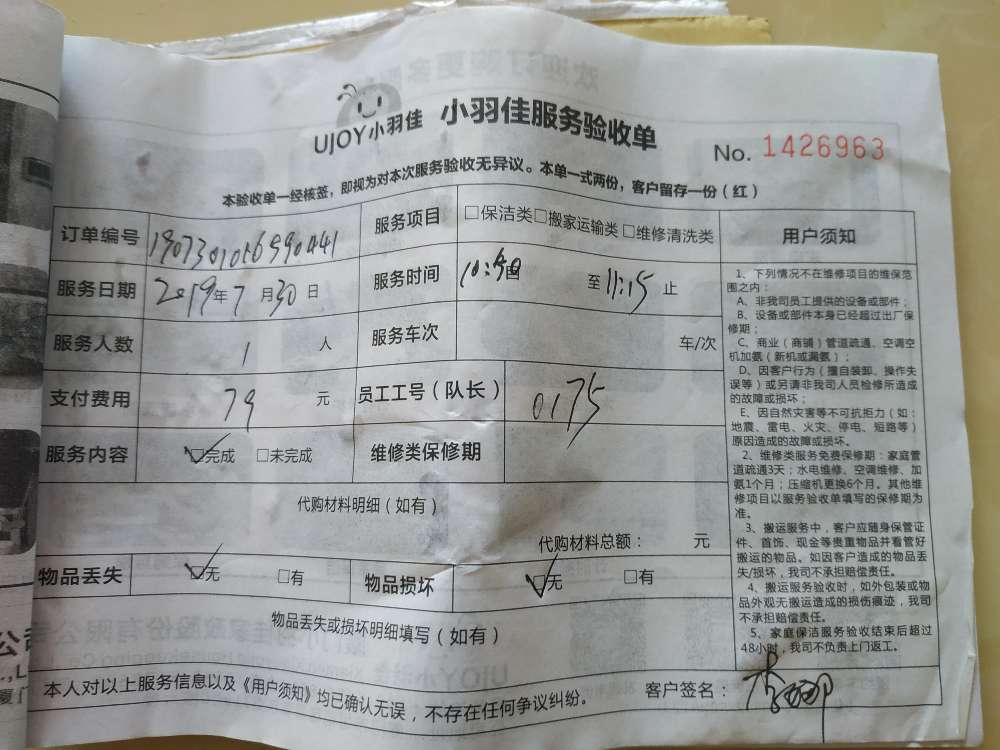 UJOY小羽佳 小羽佳服务验收单
No. 1426963
本验收单一经核签，即视为对本次服务验收无异议。本单一式两份，客户留存一份（红）
订单编号 1907301016590441 服务项目 □保洁类□搬家运输类 □维修清洗类
服务日期 2019年7月30日 服务时间 至11:15止
服务人数 1 人 服务车次 车/次
支付费用 79 元 员工工号（队长） 0175
服务内容 ☑完成 □未完成 维修类保修期
代购材料明细（如有）
代购材料总额： 元
物品丢失 ☑无 □有 物品损坏 ☑无 □有
物品丢失或损坏明细填写（如有）
用户须知
1、下列情况不在维修项目的维保范
围之内：
A、非我司员工提供的设备或部件；
B、设备或部件本身已经超过出厂保
修期；
C、商业（商铺）管道疏通、空调空
机加氨（新机或漏氨）；
D、因客户行为（擅自装卸、操作失
误等）或另请非我司人员检修所造成
的故障或损坏；
E、因自然灾害等不可抗拒力（如：
地震、雷电、火灾、停电、短路等）
原因造成的故障或损坏。
2、维修类服务免费保修期：家庭管
道疏通3天；水电维修、空调维修、加
氨1个月；压缩机更换6个月。其他维
修项目以服务验收单填写的保修期为
准。
3、搬运服务中，客户应随身保管证
件、首饰、现金等贵重物品并看管好
搬运的物品。如因客户造成的物品丢
失/损坏，我司不承担赔偿责任。
4、搬运服务验收时，如外包装或物
品外观无搬运造成的损伤痕迹，我司
不承担赔偿责任。
5、家庭保洁服务验收结束后超过
48小时，我司不负责上门返工。
本人对以上服务信息以及《用户须知》均已确认无误，不存在任何争议纠纷。 客户签名：